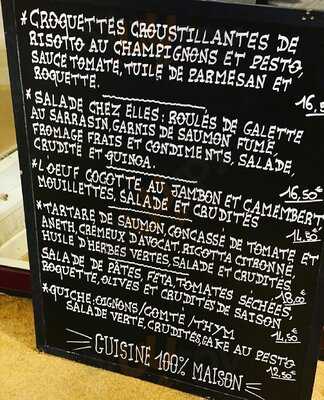 *CROQUETTES CROUSTILLANTES DE
RISOTTO AU CHAMPIGNONS ET PESTO,
SAUCE TOMATE, TUILE DE PARMESAN ET
ROQUETTE.
16,5
*SALADE CHEZ ELLES: ROULÉS DE GALETTE
AU SARRASIN, GARNIS DE SAUMON FUMÉ,
FROMAGE FRAIS ET CONDIMENTS, SALADE,
CRUDITÉ ET QUINOA.
16,50€
*L'OEUF COCOTTE AU JAMBON ET CAMEMBERT
MOUILLETTES, SALADE ET CRUDITÉS
14,50€
*TARTARE DE SAUMON, CONCASSÉ DE TOMATE ET
ANETH, CRÉMEUX D'AVOCAT, RICOTTA CITRONNÉ,
HUILE D'HERBES VERTES, SALADE ET CRUDITÉS
18,00€
SALADE DE PÂTES, FETA, TOMATES SÉCHÉES,
ROQUETTE, OLIVES ET CRUDITÉS DE SAISON
14,50€
*QUICHE: OIGNONS/COMTÉ/THYM
SALADE VERTE, CRUDITÉS, CAKE AU PESTO
12,50€
CUISINE 100% MAISON